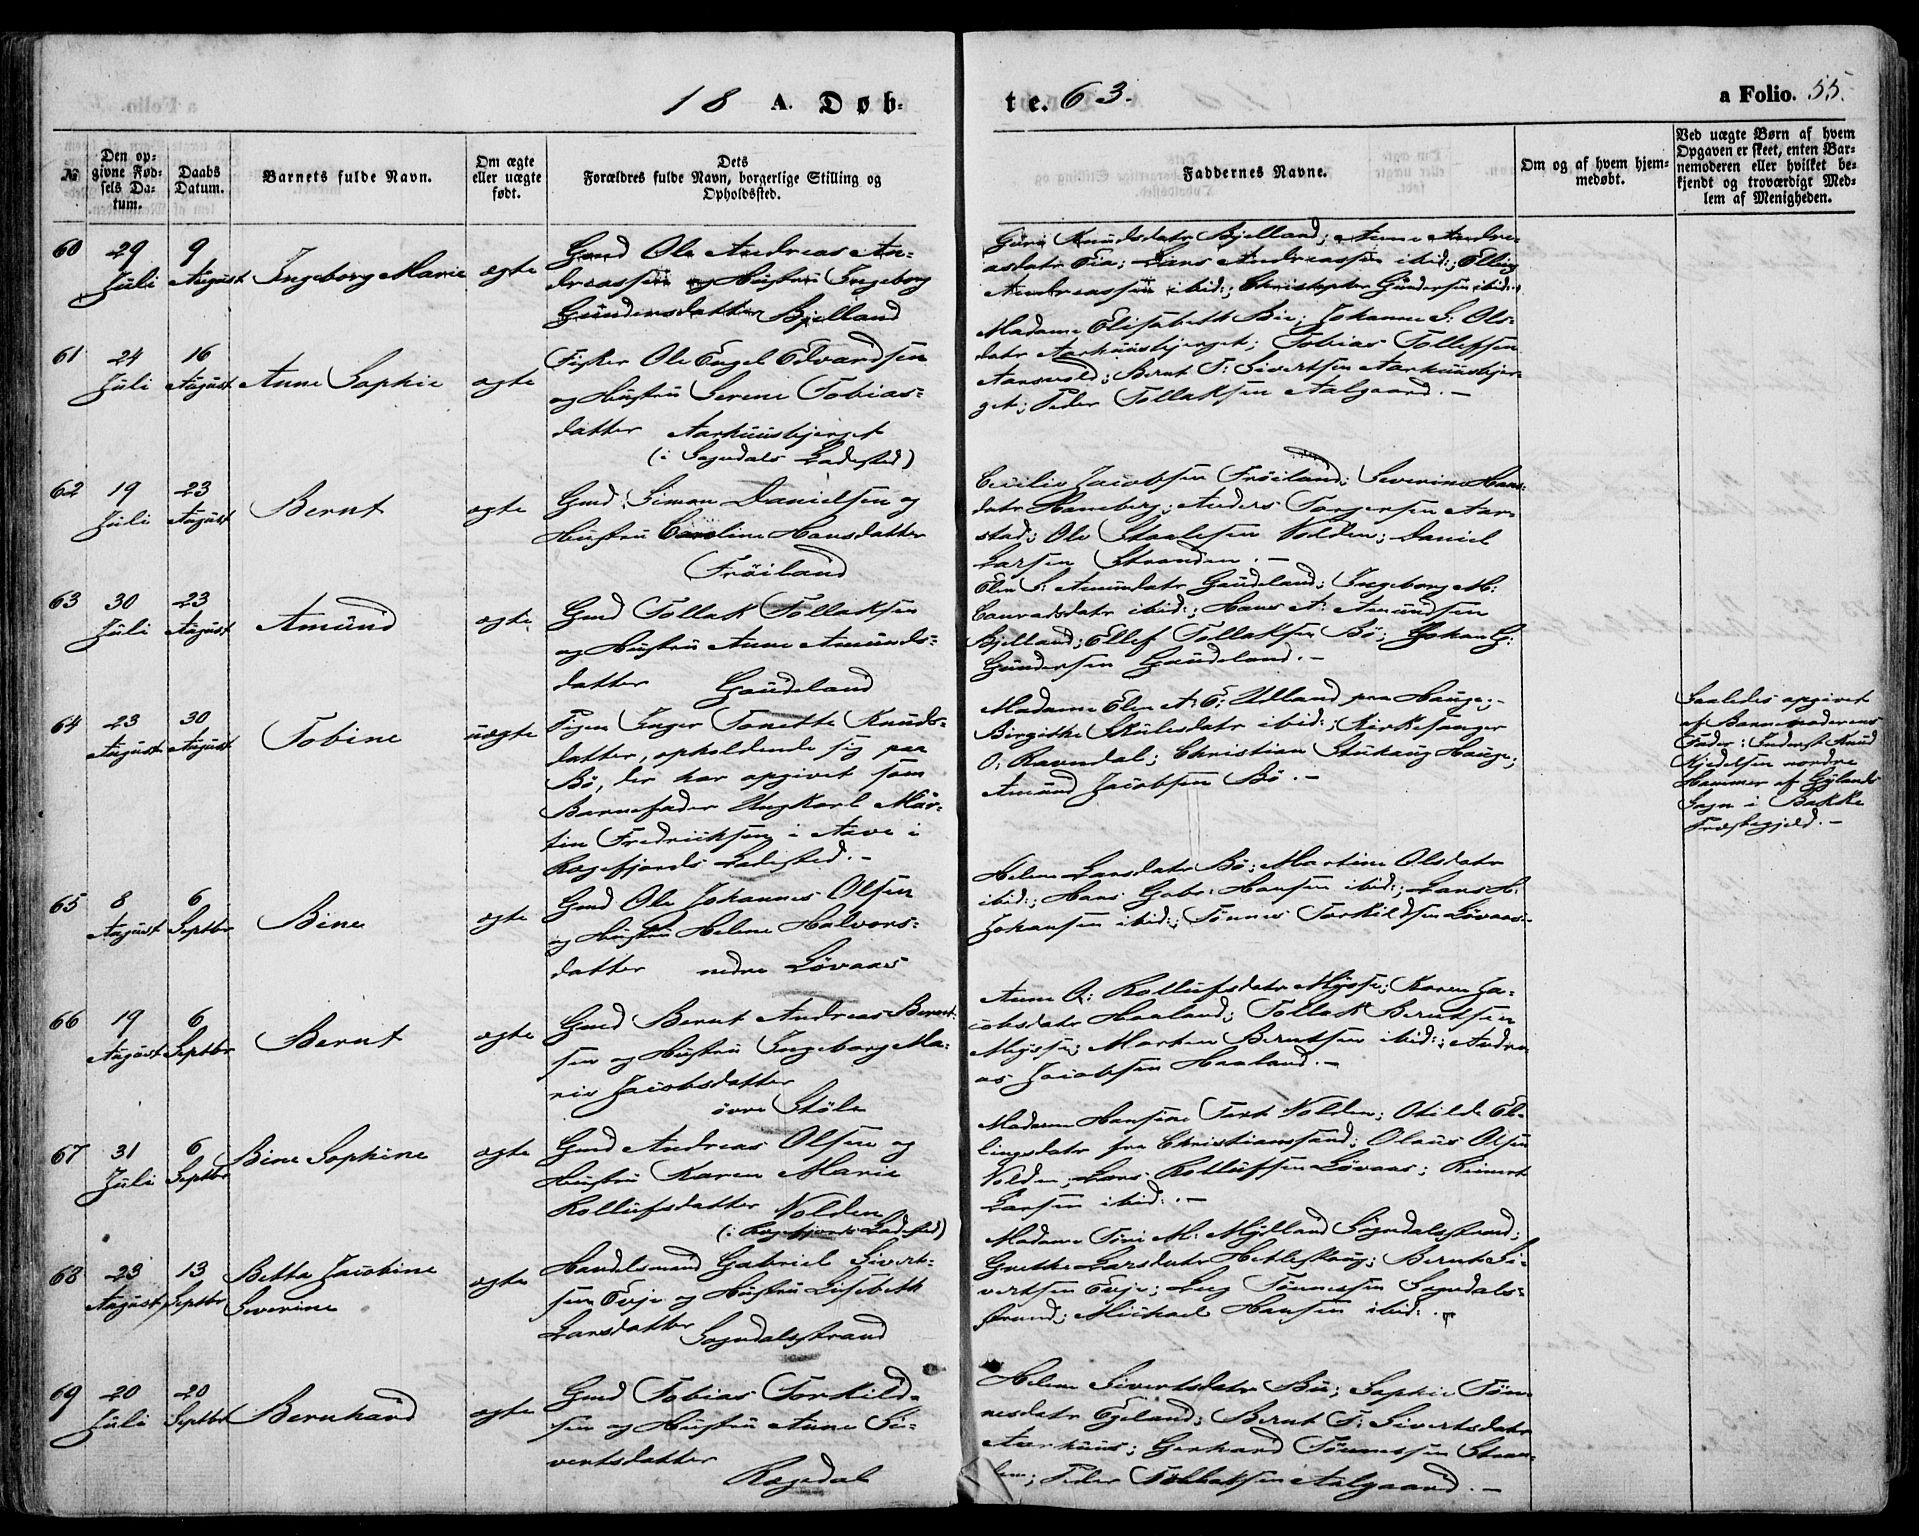 18 A. Døb-
te. 63.
a Folio. 55.
No
Den op-
givne Fød-
sels Da-
tum.
Daabs
Datum.
Barnets fulde Navn.
Om ægte
eller uægte
født.
Dets
Forældres fulde Navn, borgerlige Stilling og
Opholdssted.
Faddernes Navne.
Om og af hvem hjem-
medøbt.
Ved uægte Børn af hvem
Opgaven er skeet, enten Bar-
nemoderen eller hvilket be-
kjendt og troværdigt Med-
lem af Menigheden.
60
29
Juli
9
August
Ingeborg Marie
ægte
Gmd Ole Andreas An-
dreassen og Hustru Ingeborg
Gundersdatter Bjelland
Guri Knudsdatr Bjelland; Anne Andre-
asdatr Eia; Lars Andreassen ibid:; Elling
Andreassen ibid:; Christopher Gundersen ibid:
61
24
Juli
16
August
Anne Sophie
ægte
Fisker Ole Engel Edvardsen
og Hustru Serene Tobias-
datter Aarhuusbjerget
(i Sogndals Ladested)
Madame Elisabeth Bie; Johanne S: Ols-
datr Aarhuusbjerget; Tobias Tollefsen
Aarsvold; Bernt T: Sivertsen Aarhuusbjer-
get; Peder Tollaksen Aalgaard. -
62
19
Juli
23
August
Bernt
ægte
Gmd. Simon Danielsen og
Hustru Caroline Hansdatter
Frøiland
Cecilie Jacobsen Frøiland; Severine Hans-
datr Haneberg; Anders Torgersen Aar-
stad; Ole Staalesen Volden; Daniel
Larsen Stranden. -
63
30
Juli
23
August
Amund
ægte
Gmd Tollak Tollaksen
og Hustru Anne Amunds-
datter Gaudeland
Elen S. Amundatr Gaudeland; Ingeborg M:
Conradsdatr ibid:; Hans A: Amundsen
Bjelland; Ellef Tollaksen Bö; Johan G:
Gundersen Gaudeland. -
64
23
August
30
August
Tobine
uægte
Pigen Inger Tonette Knuds-
datter, opholdende sig paa
Bö, der har opgivet som
Barnefader Ungkarl Mar-
tin Fredriksen i Aave i
Rægefjords Ladested. -
Madame Elen A: E: Udland paa Hauge; -
Birgithe Skulesdatr ibid:; Kirkesanger
O: Ravndal; Christian Hauge;
Amund Jacobsen Bö. -
Saaledes opgivet
af Barnemoderens
Fader: Inderst Knud
Kjedelsen nordre
Hammer af Gylands
Sogn i Bakke
Præstegjeld. -
65
8
August
6
Septbr
Bine
ægte
Gmd Ole Johannes Olsen
og Hustru Helene Halvors-
datter nedre Løvaas
Helene Larsdatr Bö; Martine Olsdatr
ibid:; Hans Gabr: Hansen ibid:; Lars H:
Johansen ibid:; Tönnes Torkildsen Løvaas-
66
19
August
6
Septbr
Bernt
ægte
Gmd Bernt Andreas Bernt-
sen og Hustru Ingeborg Ma-
rie Jacobsdatter
övre Stöle
Anne O: Rollufsdatr Mysse; Karen Ja-
cobsdatr Haaland; Tollak Berntsen
Mysse; Martin Berntsen ibid:; Andre-
as Jacobsen Haaland. -
67
31
Juli
6
Septbr
Bine Sophine
ægte
Gmd Andreas Olsen og
Hustru Karen Marie
Rollufsdatter Volden
(i Rægefjords Ladested)
Madame Hansine Volden; Otilde El-
lingsdatr fra Christianssand; Olaus Olsen
Volden; Lars Rollufsen Løvaas; Reinert
Larsen ibid:. -
68
23
August
13
Septbr
Betta Jacobine
Severine
ægte
Handelsmand Gabriel Sivert-
sen Evje og Hustru Lisebeth
Larsdatter Sogndalsstrand
Madame Siri M: Mydland Sogndalsstrand;
Grethe Larsdatr Hetleskoug; Bernt Si-
vertsen Evje; Tönnessen Sogndals-
strand; Michael Hansen ibid:.
69
20
Juli
20
Septbr
Bernhard
ægte
Gmd Tobias Torkild-
sen og Hustru Anne Si-
vertsdatter
Rægedal
Helene Sivertsdatr Bö; Sophie Tön-
nesdatr Egeland; Bernt T: Sivertsdatr
Aarhuus; Gerhard Tönnessen
Peder Tollaksen Aalgaard. -